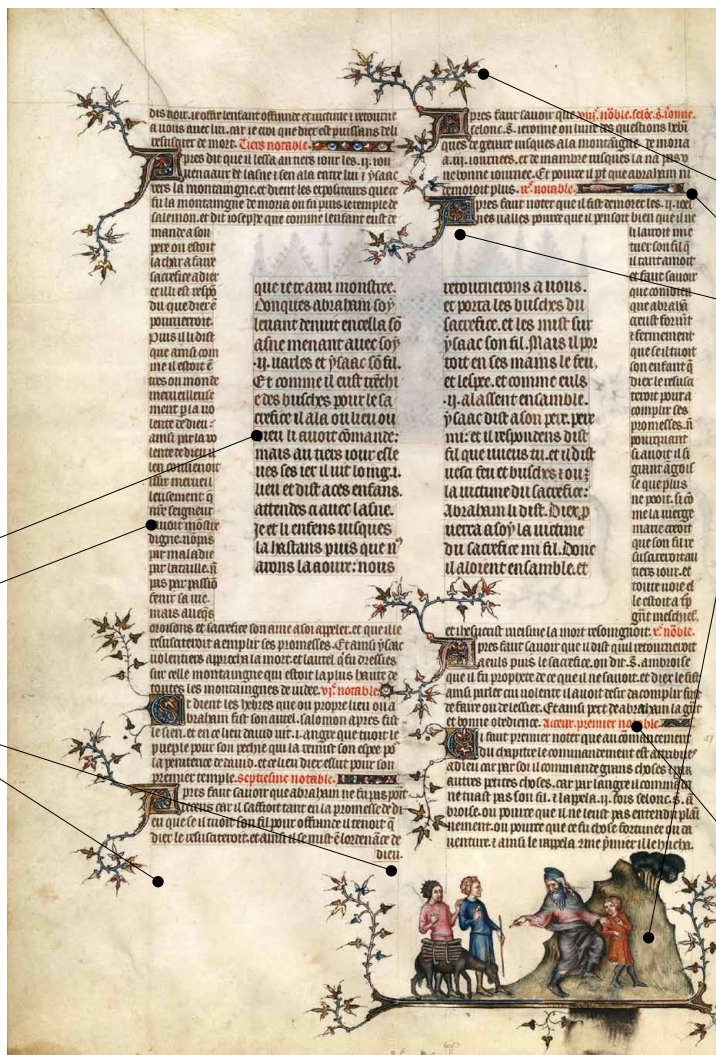 dis noir. ie offir lenfant offrande et uictime i retourne
a uous auec lui. car ie croi que dieu est puissans de li
resusciter de mort. Tiers notable.
Apres dit que il lessa au tiers iour les .ij. iou
uenciaus et lasne et sen ala entre lui et ysaac
vers la montaingne. et dient les expositeurs que ce
fu la montaingne de moria ou fu puis le temple de
salemon. et dit iosephe que comme lenfant eust de
mande a son
pere ou estoit
la char a faire
sacrefice a dieu
et il li est respō
du que dieu ē
pourueerroit.
Puis il li dist
que ainsi com
me il estoit ē
tres ou monde
merueilleuse
ment p la uo
lente de dieu:
ainsi par la vo
lente de dieu il
len couuenoit
issir merueil
leusement q̄
nr̄e seigneur
auoit mōstre
digne. nō pas
par maladie
par bataille. ñ
pas par passiō
fenir sa uie.
mais auecq̄s
oroisons et sacrefice son ame a soi apeler. et que il le
resusciteroit a emplir ses promesses. Et ainsi ysaac
uolentiers approcha la mort. et lautel q̄ fu dressies
sur celle montaingne qui estoit la plus haute de
toutes les montaingnes de iudee. vjᵉ. notables.
Et dient les hebres que ou propre lieu ou a
braham fist son autel. salomon apres fist
le sien. et en ce lieu dauid uit .i. angre que tuoit le
pueple pour son pechie qui la remist son espee pō
la penitence de dauid. et ce lieu dieu eslut pour son
premier temple. Septiesme notable.
Apres faut sauoir que abraham ne fu pas pōit
deceus car il saffioit tant en la promesse de di
eu que se il tuoit son fil pour offrande il tenoit q̄
dieu le resusciteroit. et ainsi il se mist ē lordenāce de
dieu.
que ie te aurai monstree.
Donques abraham soy
leuant de nuit encella sō
asne menant auec soy
.ij. uarles et ysaac sō fil.
Et comme il eust trēchi
e des busches pour le sa
crefice il ala ou lieu ou
dieu li auoit cōmande:
mais au tiers iour esle
ues ses iex il uit loing .i.
lieu et dist a ces enfans.
attendes ci auec lasne.
Je et li enfens iusques
la hastans puis que n9
arons la aoure: nous
retournerons a uous.
et porta les busches du
sacrefice. et les mist sur
ysaac son fil. Mais il por
toit en ses mains le feu.
et lespee. et comme euls
.ij. alassent ensamble.
ysaac dist a son pere. pere
mi: et il respondens dist
fil que uueus tu. et il dist
uesci feu et busches: ou ē
la uictime du sacrefice:
Abraham li dist. Dieu p
uerra a soy la uictime
du sacrefice mi fil. Donc
il alorent ensamble. et
Apres faut sauoir que viijᵉ. nōble. selōc .s. ierōme.
selonc .s. ierome ou liure des questions hebri
ques de gerare iusques a la montaingne de moria
a .iij. iournees. et de mambre iusques la na pas
une bonne iournee. Et pource il pt que abraham ni
demoroit plus. ixᵉ. notable.
Apres faut noter que il fist demorer les .ij. ioe
nes ualles pource que il pensoit bien que il ne
li lairoit mie
tuer son fil q̄
il tant amoit
et faut sauoir
que combien
que abrahā
creust formēt
et fermement
que se il tuoit
son enfant q̄
dieu le resusci
teroit pour a
complir ses
promesses. ñ
pourquant
si auoit il si
grant āgoisse
que plus
ne pooit. si cō
me la uierge
marie creoit
que son fil re
susciteroit au
tiers iour. et
toute uoie el
le estoit a tp
grāt meschief.
et ihesucrist meisme la mort resoingnoit. xᵉ. nōble.
Apres faut sauoir que il dist qui l retourneroit
a euls puis le sacrefice. ou dit .s. ambroise
que il fu prophete de ce que il ne sauoit. et dieu le fist
ainsi parler cui uolente il auoit desir dacomplir fust
de faire ou de lessier. Et ainsi pert de abraham la grāt
et bonne obedience. Acteur. premier notable.
Il faut premier noter que au commencement
du chapitre le commandement est attribues
a dieu car par soi il commande grans choses et par
autres petites choses. car par langre il commāda
ne tuast pas son fil. et lapela .ij. fois selonc .s. ā
broise. ou pource que il ne leust pas entendu plai
nement. ou pource que ce fu chose fortunee ou da
uenture. et ainsi le rappela